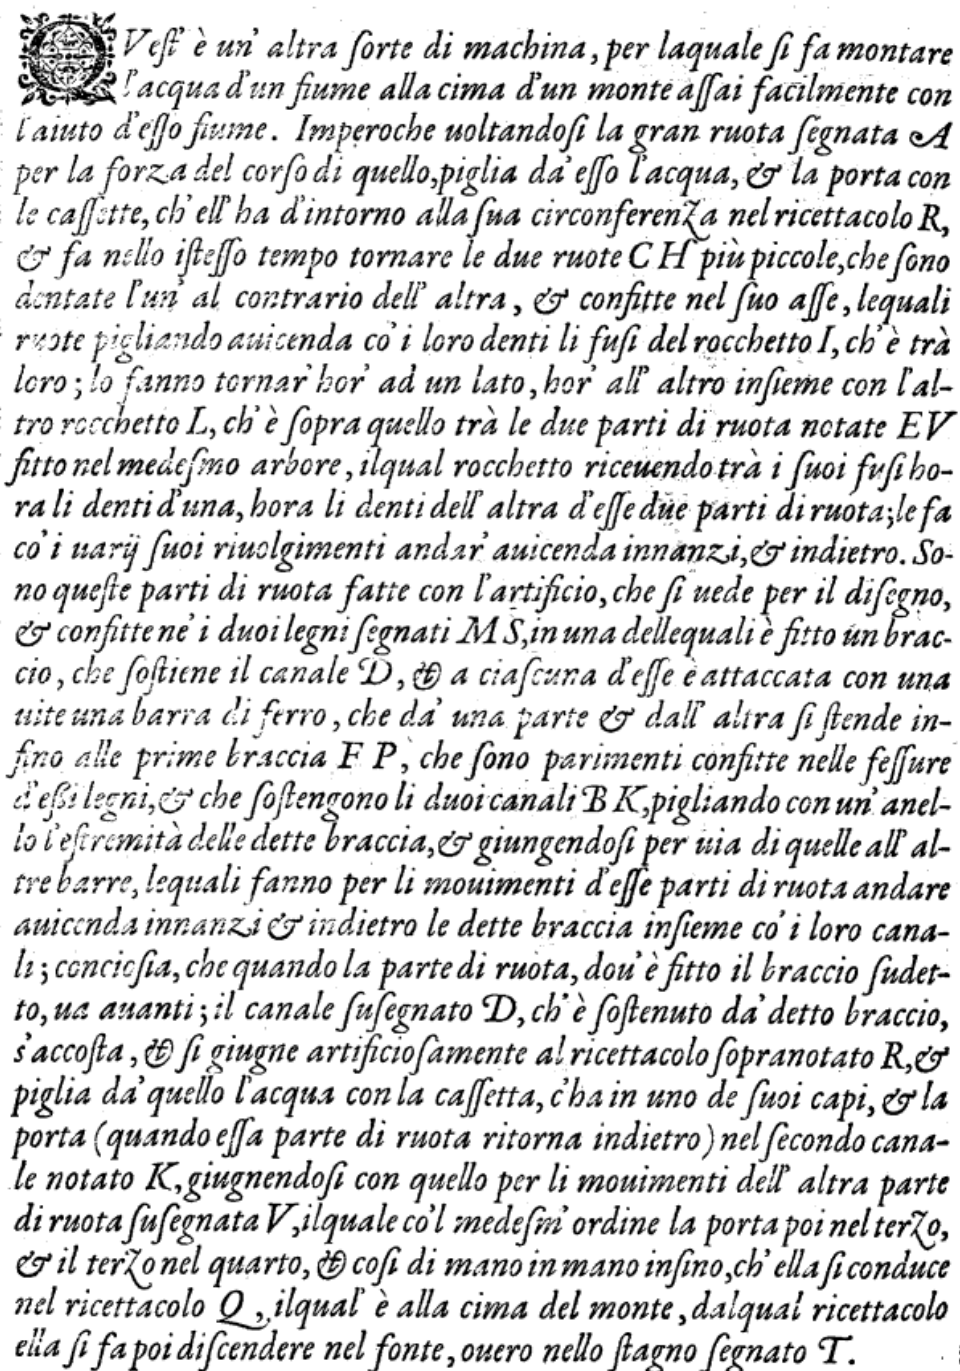 QVest' è un' altra sorte di machina, per laquale si fa montare
l'acqua d'un fiume alla cima d'un monte assai facilmente con
l'aiuto d'esso fiume. Imperoche uoltandosi la gran ruota segnata A
per la forza del corso di quello, piglia da' esso l'acqua, & la porta con
le cassette, ch' ell' ha d'intorno alla sua circonferenza nel ricettacolo R,
& fa nello istesso tempo tornare le due ruote C H più piccole, che sono
dentate l'un' al contrario dell' altra, & confitte nel suo asse, lequali
ruote pigliando auicenda co' i loro denti li fusi del rocchetto I, ch' è trà
loro; lo fanno tornar' hor' ad un lato, hor' all' altro insieme con l'al-
tro rocchetto L, ch' è sopra quello trà le due parti di ruota notate E V
fitto nel medesmo arbore, ilqual rocchetto riceuendo trà i suoi fusi ho-
ra li denti d'una, hora li denti dell' altra d'esse due parti di ruota; le fa
co' i uarij suoi riuolgimenti andar' auicenda innanzi, & indietro. So-
no queste parti di ruota fatte con l'artificio, che si uede per il disegno,
& confitte ne' i duoi legni segnati M S, in una dellequali è fitto un brac-
cio, che sostiene il canale D, & a ciascuna d'esse è attaccata con una
uite una barra di ferro, che da' una parte & dall' altra si stende in-
fino alle prime braccia F P, che sono parimenti confitte nelle fessure
d'essi legni, & che sostengono li duoi canali B K, pigliando con un' anel-
lo l'estremità delle dette braccia, & giungendosi per uia di quelle all' al-
tre barre, lequali fanno per li mouimenti d'esse parti di ruota andare
auicenda innanzi & indietro le dette braccia insieme co' i loro cana-
li; conciosia, che quando la parte di ruota, dou' è fitto il braccio sudet-
to, ua auanti; il canale susegnato D, ch' è sostenuto da' detto braccio,
s'accosta, & si giugne artificiosamente al ricettacolo sopranotato R, &
piglia da' quello l'acqua con la cassetta, c'ha in uno de suoi capi, & la
porta (quando essa parte di ruota ritorna indietro) nel secondo cana-
le notato K, giugnendosi con quello per li mouimenti dell' altra parte
di ruota susegnata V, ilquale co'l medesm' ordine la porta poi nel terzo,
& il terzo nel quarto, & cosi di mano in mano insino, ch' ella si conduce
nel ricettacolo Q, ilqual' è alla cima del monte, dalqual ricettacolo
ella si fa poi discendere nel fonte, ouero nello stagno segnato T.